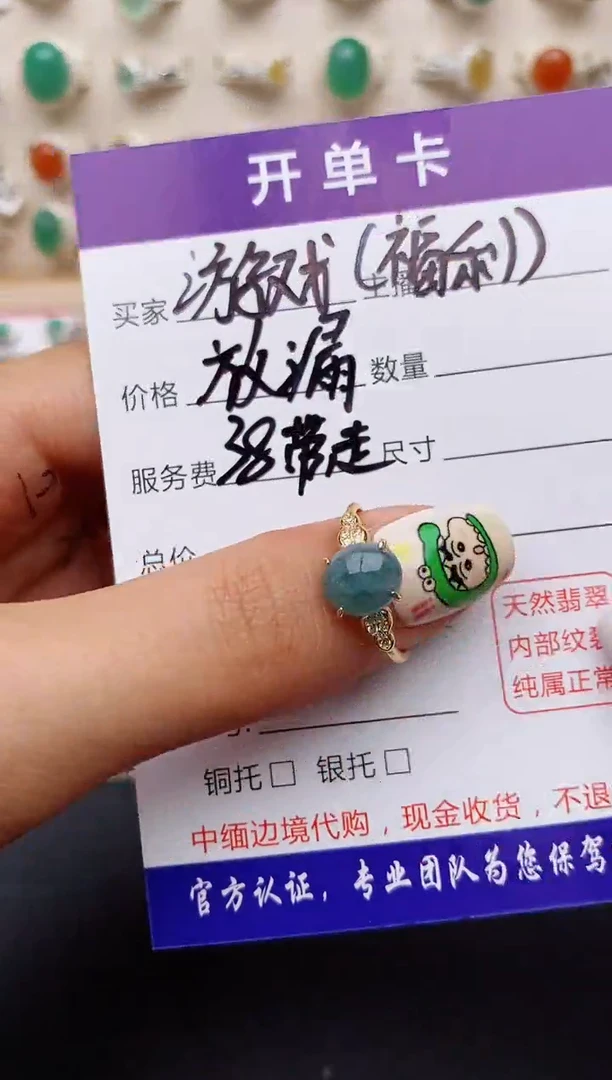 开单卡
买家 游戏(福利) 主播
价格 放漏 数量
服务费 38带走 尺寸
总价
天然翡翠
内部纹裂
纯属正常
铜托□ 银托□
中缅边境代购，现金收货，不退
官方认证，专业团队为您保驾